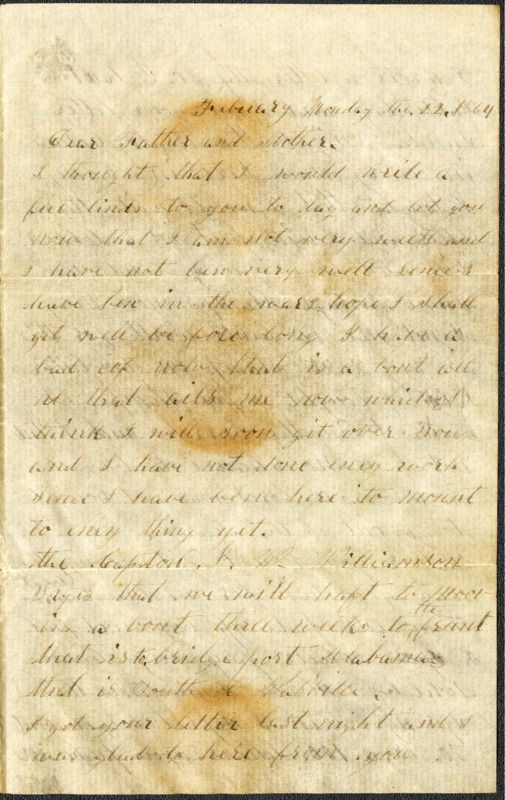 Febuary Monday the 22. 1864
Dear Father and Mother.
I thought that I would write a
few lines to you to day and let you
now that I am not very well and
I have not ben very well sence I
have ben in the wars hope I shall
git well be fore long I have a
bad now that is a bout all
at that ails me now which I
think I will soon git over now
and I have not done eney work
sence I have been here to mount
to eney thing yet.
the Capton J. Wm Williamson
Says that we will haft to
in a bout three weeks to the frunt
that is to bridge port Alabama
that is South of Nasville.
I got your letter last night and I
was glad to here from you